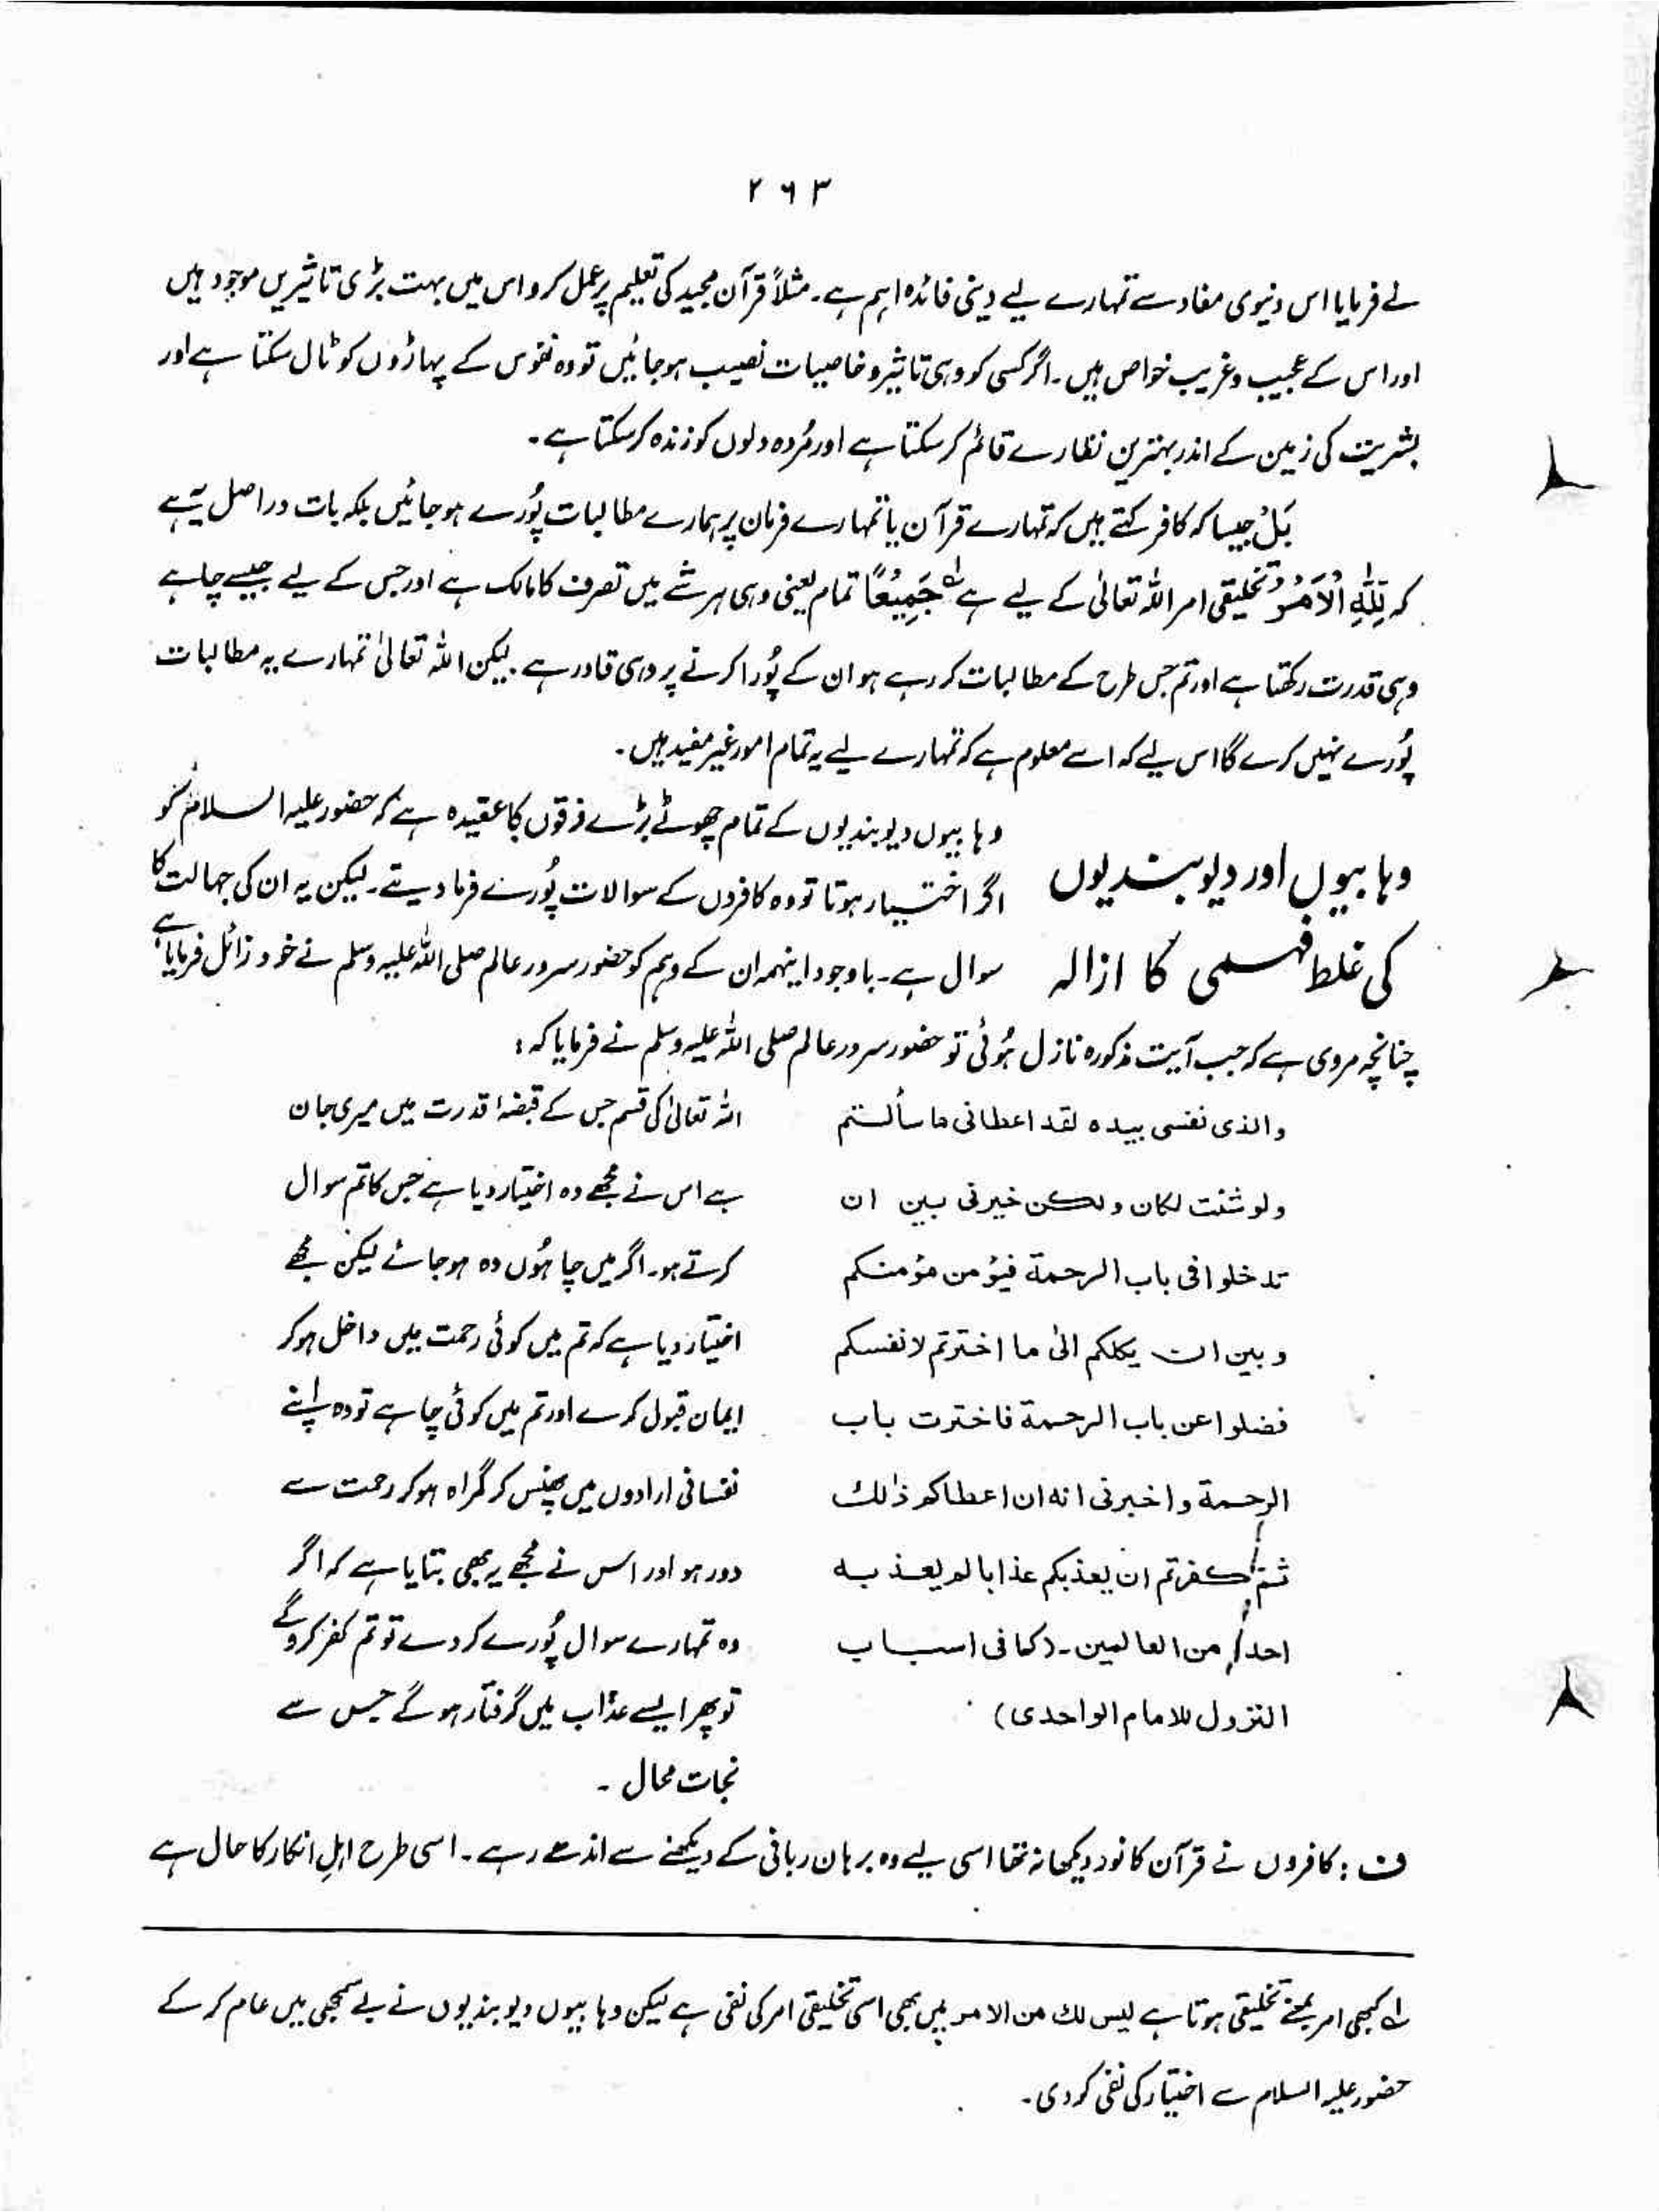 ۲۶۳
نے فرمایا اس دنیوی مفاد سے تمہارے لیے دینی فائدہ اہم ہے۔ مثلاً قرآن مجید کی تعلیم پر عمل کرو اس میں بہت بڑی تاثیریں موجود ہیں
اور اس کے عجیب و غریب خواص ہیں۔ اگر کسی کو وہی تاثیر و خاصیات نصیب ہو جائیں تو وہ نفوس کے پہاڑوں کو ٹال سکتا ہے اور
بشریت کی زمین کے اندر بہترین نظارے قائم کر سکتا ہے اور مُردہ دلوں کو زندہ کر سکتا ہے۔
بَلْ جیسا کہ کافر کہتے ہیں کہ تمہارے قرآن یا تمہارے فرمان پر ہمارے مطالبات پُورے ہو جائیں بلکہ بات دراصل یہ ہے
کہ لِلّٰہِ الْاَمْرُ تخلیقی امر اللہ تعالیٰ کے لیے ہے لہ جَمِیْعًا تمام یعنی وہی ہر شے میں تصرف کا مالک ہے اور جس کے لیے جیسے چاہے
وہی قدرت رکھتا ہے اور تم جس طرح کے مطالبات کر رہے ہو ان کے پُورا کرنے پر وہی قادر ہے۔ لیکن اللہ تعالیٰ تمہارے یہ مطالبات
پُورے نہیں کرے گا اس لیے کہ اسے معلوم ہے کہ تمہارے لیے یہ تمام امور غیر مفید ہیں۔
وہابیوں اور دیوبندیوں
کی غلط فہمی کا ازالہ
وہابیوں دیوبندیوں کے تمام چھوٹے بڑے فرقوں کا عقیدہ ہے کہ حضور علیہ السلام کو
اگر اختیار ہوتا تو وہ کافروں کے سوالات پُورے فرما دیتے۔ لیکن یہ ان کی جہالت کا
سوال ہے۔ باوجود اینہمہ ان کے وہم کو حضور سرور عالم صلی اللہ علیہ وسلم نے خود زائل فرمایا ہے
چنانچہ مروی ہے کہ جب آیت مذکورہ نازل ہُوئی تو حضور سرور عالم صلی اللہ علیہ وسلم نے فرمایا کہ:
والذی نفسی بیدہ لقد اعطانی ما سألتم
ولو شئت لکان ولکن خیرنی بین ان
تدخلوا فی باب الرحمة فیؤمن مؤمنکم
وبین ان یکلکم الیٰ ما اخترتم لانفسکم
فضلوا عن باب الرحمة فاخترت باب
الرحمة واخبرنی انہ ان اعطاکم ذٰلک
ثم کفرتم ان یعذبکم عذابا لم یعذبہ
احدا من العالمین۔ (کما فی اسباب
النزول للامام الواحدی)
اللہ تعالیٰ کی قسم جس کے قبضۂ قدرت میں میری جان
ہے اس نے مجھے وہ اختیار دیا ہے جس کا تم سوال
کرتے ہو۔ اگر میں چاہُوں وہ ہو جائے لیکن مجھے
اختیار دیا ہے کہ تم میں کوئی رحمت میں داخل ہو کر
ایمان قبول کرے اور تم میں کوئی چاہے تو وہ اپنے
نفسانی ارادوں میں پھنس کر گمراہ ہو کر رحمت سے
دور ہو اور اس نے مجھے یہ بھی بتایا ہے کہ اگر
وہ تمہارے سوال پُورے کر دے تو تم کفر کرو گے
تو پھر ایسے عذاب میں گرفتار ہو گے جس سے
نجات محال۔
ف: کافروں نے قرآن کا نور دیکھا نہ تھا اسی لیے وہ برہان ربانی کے دیکھنے سے اندھے رہے۔ اسی طرح اہلِ انکار کا حال ہے
لہ کبھی امر بمعنے تخلیقی ہوتا ہے لیس لک من الامر میں بھی اسی تخلیقی امر کی نفی ہے لیکن وہابیوں دیوبندیوں نے بے سمجھی میں عام کر کے
حضور علیہ السلام سے اختیار کی نفی کر دی۔